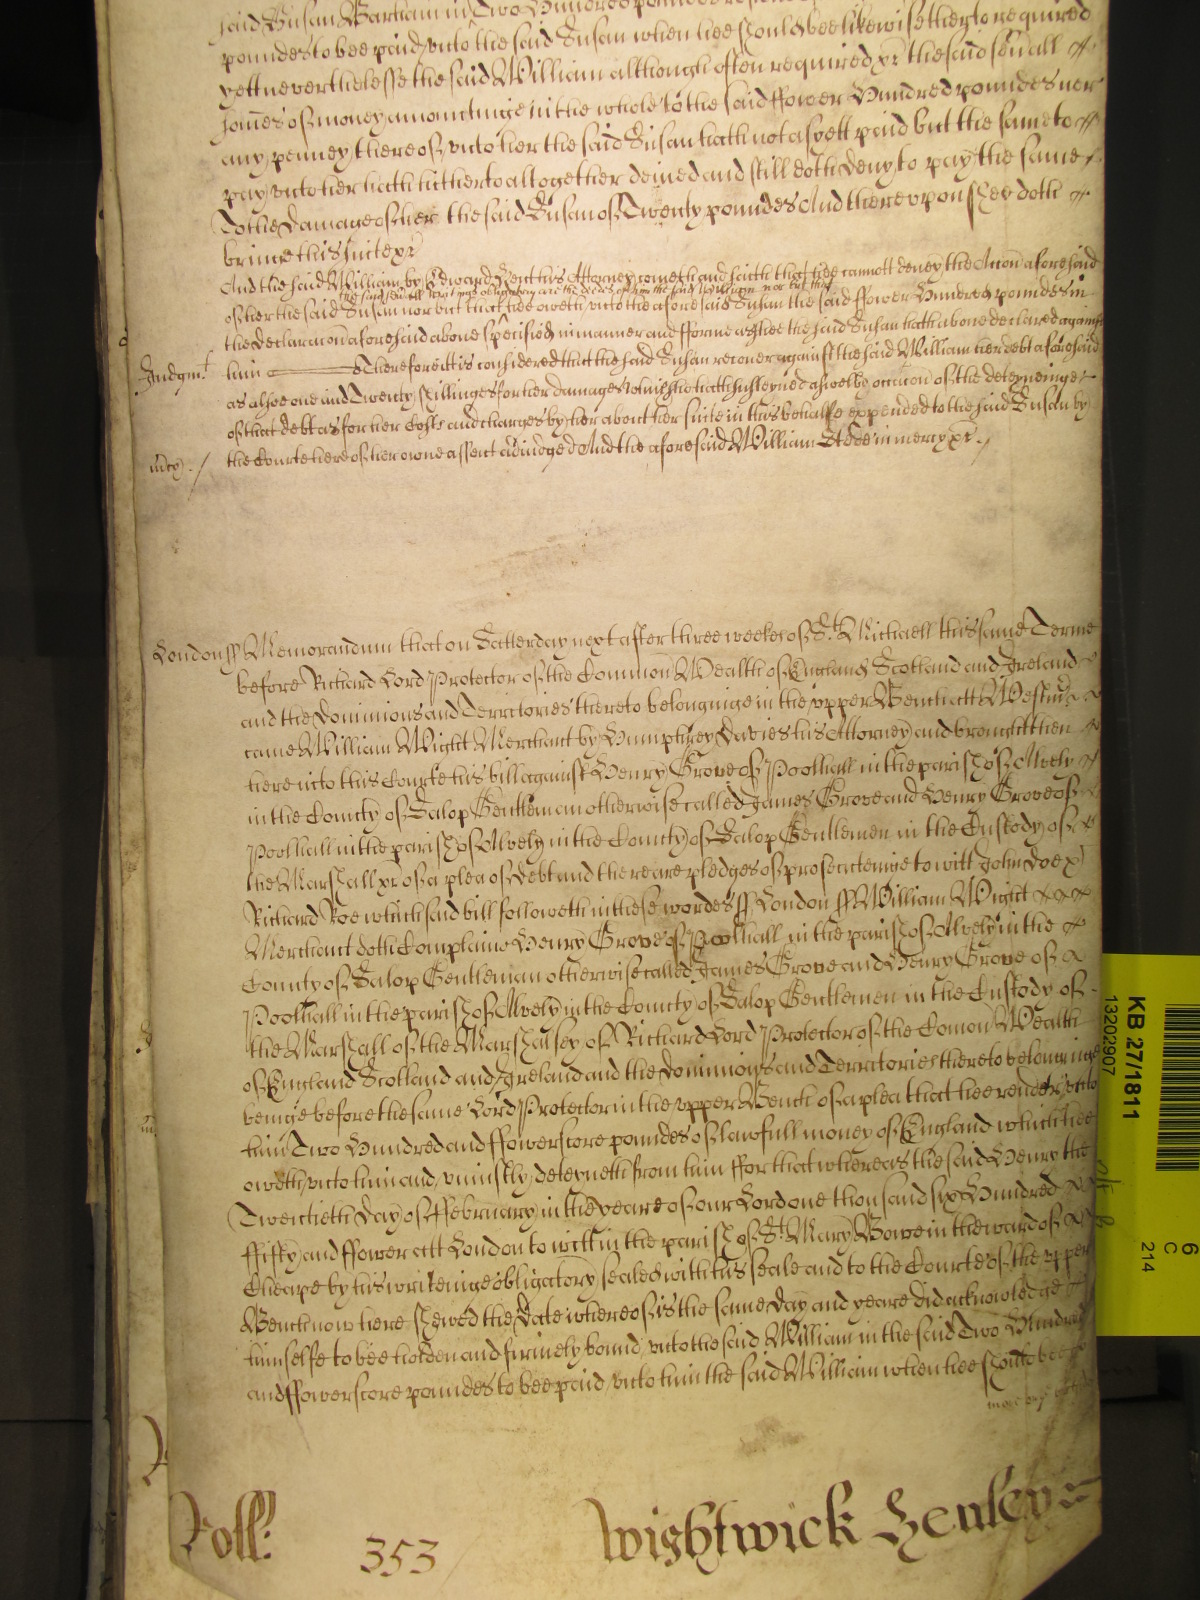 said Susan Bartram in Two Hundred poundes
poundes to bee paid unto the said Susan when hee should bee likewise therto required
yett neverthelesse the said William although often required &c the said sevall
somes of money amountinge in the whole to the said ffower Hundred poundes nor
any penney thereof unto her the said Susan hath not as yett paid but the same to
pay unto her hath hitherto altogether denied and still doth deny to pay the same
To the damage of her the said Susan of Twenty poundes And thereupon shee doth
bringe this suite &c
And the said William by Edward Kent his Attorney cometh and saith that hee cannott deney the Accon aforesaid
the said severall writings obligatory are the deedes of him the said William nor but that
of her the said Susan nor but that hee oweth unto the aforesaid Susan the said ffower Hundred poundes in
the declaracon aforesaid above specified in manner and fforme as shee the said Susan hath above declared against
Judgmt. him Therefore itt is considered that the said Susan recover against the said William her debt aforesaid
as alsoe one and Twenty shillinges for her damages which shee hath susteyned aswell by occacon of the deteyneinge
of that debt as for her Costs and charges by her about her suite in this behalfe expended to the said Susan by
mcy. the Courte here of her owne assent adiudged And the aforesaid William bee in mercy &c.
London ss Memorandum that on Satterday next after three weekes of St. Michaell this same Terme
before Richard Lord Protector of the Common Wealth of England Scotland and Ireland
and the Dominions and Territories thereto belonginge in the upper Bench att Westmr
came William Wight Merchant by Humphrey Davies his Attorney and brought then
here into this Courte his bill against Henry Grove of Poolhall in the parish of Alvely
in the County of Salop Gentleman otherwise called James Grove and Henry Grove of
Poolhall in the parish of Alvely in the County of Salop Gentlemen in the Custody of
the Marshall &c of a plea of Debt and there are pledges of prosecuteinge to witt John Doe &
Richard Roe which said bill followeth in these wordes ss London ss William Wight
Merchant doth Complaine Henry Grove of Poolhall in the parish of Alvely in the
County of Salop Gentleman otherwise called James Grove and Henry Grove of
Poolhall in the parish of Alvely in the County of Salop Gentlemen in the Custody of
the Marshall of the Marshalsey of Richard Lord Protector of the Comon Wealth
of England Scotland and Ireland and the Dominions and Territories thereto belonginge
beinge before the same Lord Protector in the upper Bench of a plea that hee render unto
him Two Hundred and ffowerscore poundes of lawfull money of England which hee
oweth unto him and uniustly deteyneth from him ffor that whereas the said Henry the
Twentieth day of ffebruary in the yeare of our Lord one thousand six Hundred
ffifty and ffower att London to witt in the parish of St. Mary Bowe in the ward of
Cheape by his writeinge obligatory sealed with his seale and to the Courte of the upper
Bench now here shewed the Date whereof is the same day and yeare did acknowledge
himselfe to bee holden and firmely bound unto the said William in the said Two Hundred
and ffowerscore poundes to bee paid unto him the said William when hee should bee
Roll. 353 Wightwick Henley
KB 27/1811
13202907
6
C
214